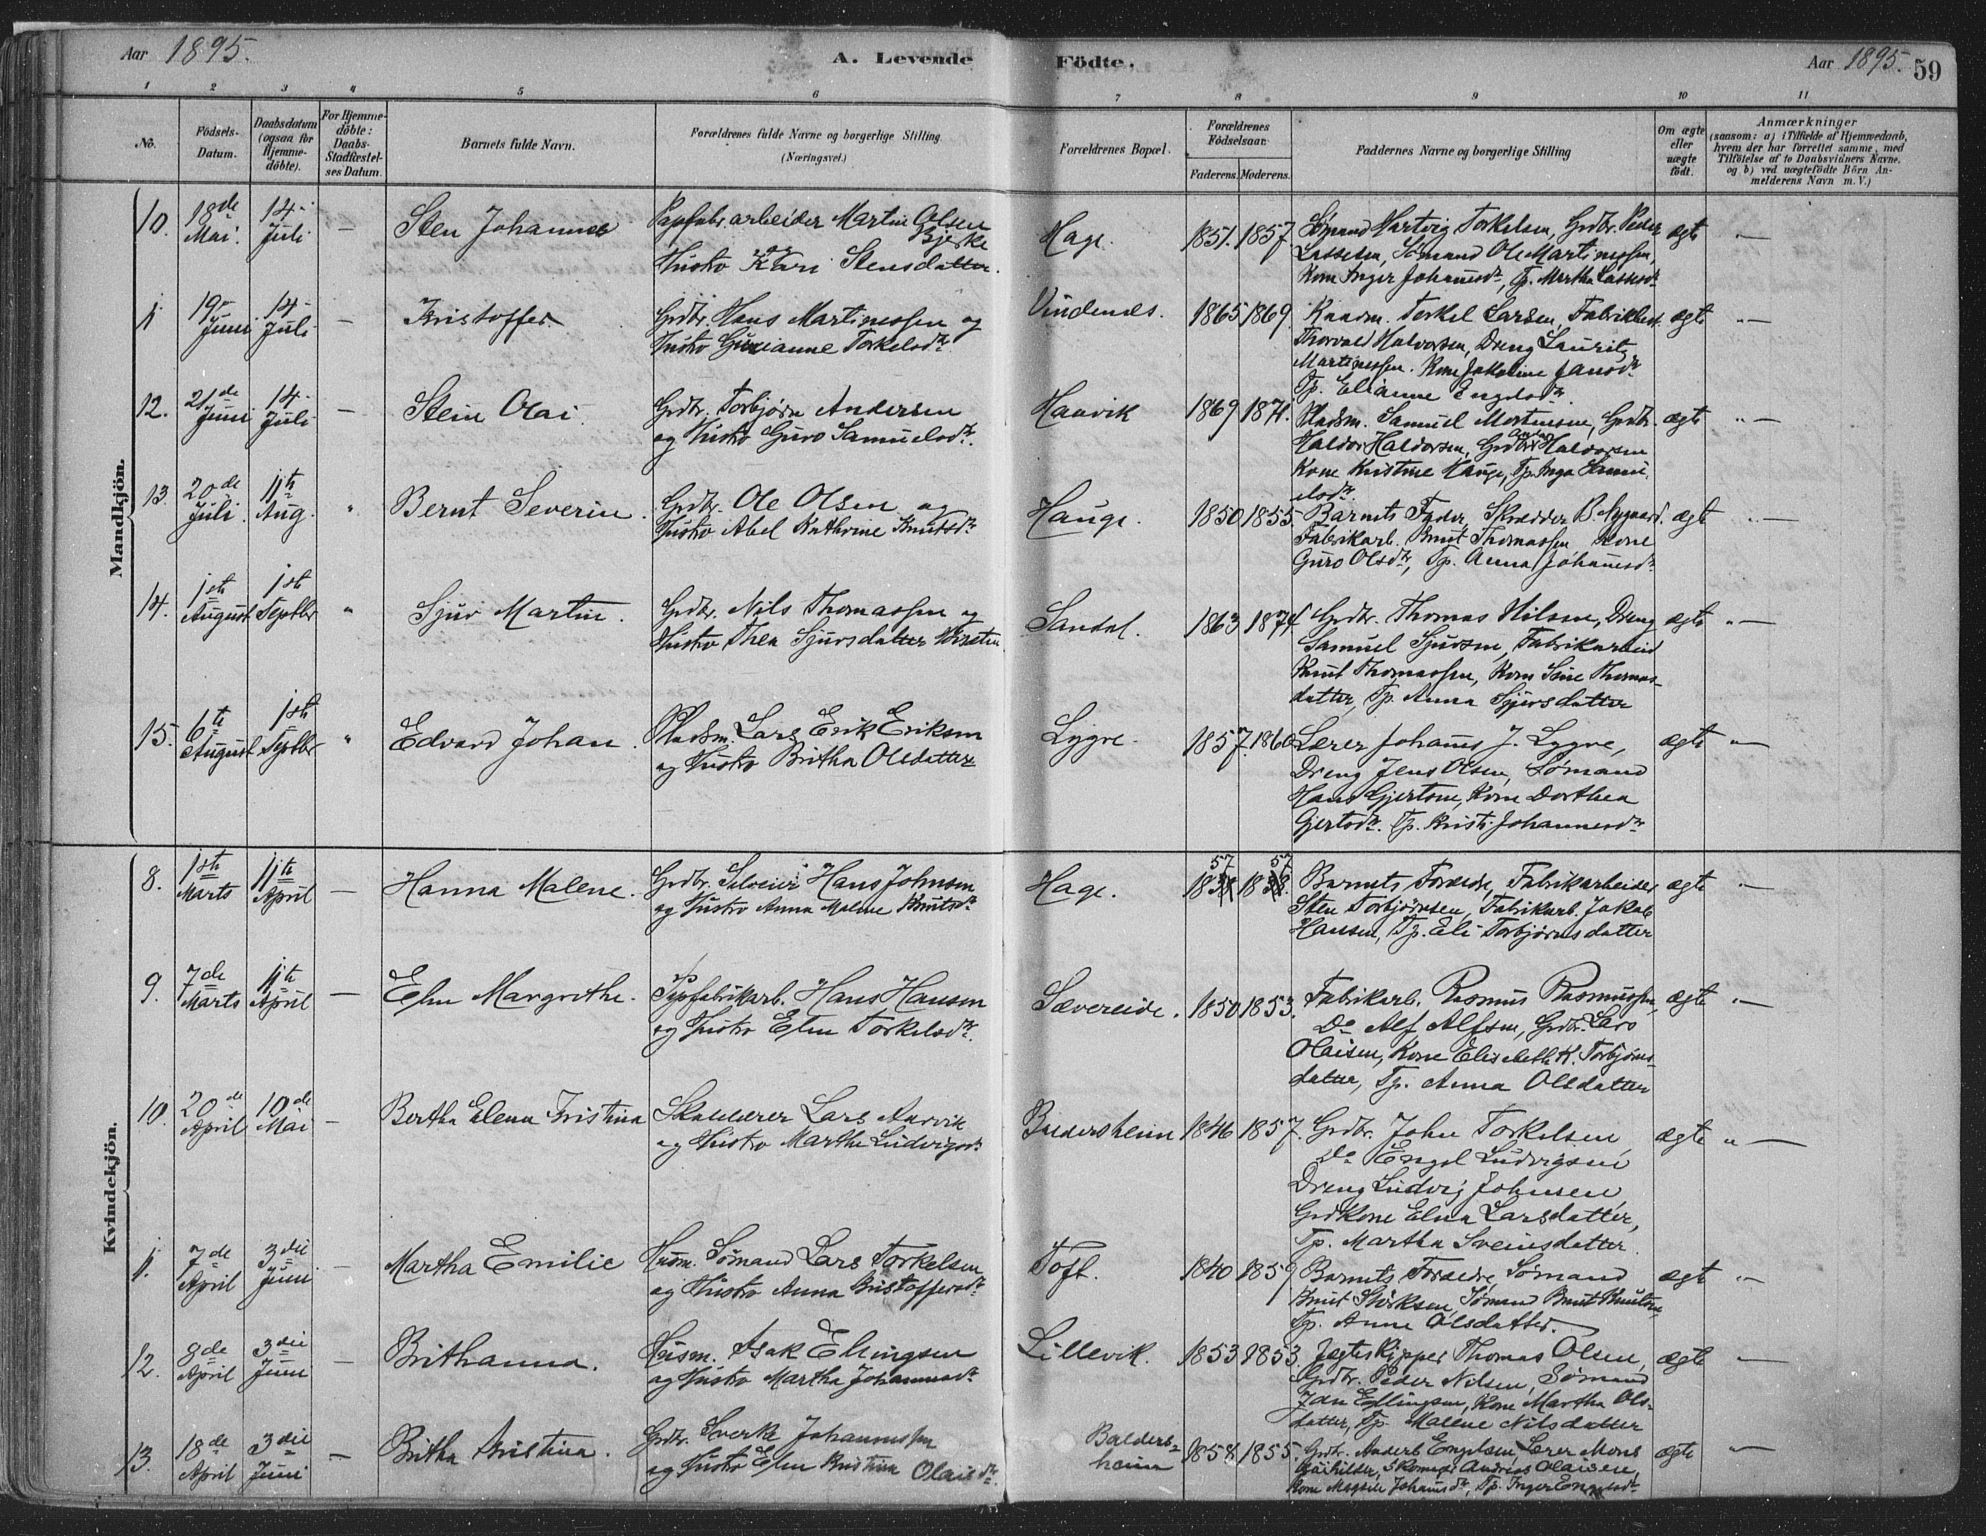 Aar 1895.
A. Levende
Födte.
Aar 1895. 59
1 2 3 4 5 6 7 8 9 10 11
No.
Födsels-
Datum.
Daabsdatum
(ogsaa for
Hjemme-
döbte).
For Hjemme-
döbte:
Daabs-
Stadfæstel-
ses Datum.
Barnets fulde Navn.
Forældrenes fulde Navne og borgerlige Stilling
(Næringsvei.)
Forældrenes Bopæl.
Forældrenes
Födselsaar.
Faderens. Moderens.
Faddernes Navne og borgerlige Stilling
Om ægte
eller
uægte
födt.
Anmærkninger
(saasom: a) i Tilfælde af Hjemmedaab,
hvem der har forrettet samme, med
Tilföielse af to Daabsvidners Navne.
og b) ved uægtefödte Börn An-
melderens Navn m. V.)
Mandkjön.
10. 18de Mai. 14- Juli — Sten Johannes
arbeider Martin Olsen Bjerke
og Hustro Kari Stensdatter.
Hage. 1851. 1857.
Sømand Hartvig Torkelsen, Grdbr. Peder
Lassesen, Sømand Ole Martinessen,
Kone Inger Johannesdr, Tp. Martha Lassesdr
ægte " —
11 19- Juni 14- Juli — Kristoffer.
Grdbr. Hans Martinessen og
Hustro Torkelsdr.
Vindenes. 1865 1869.
Torkel Larsen,
Thorvald Halvorsen, Dreng Laurits
Martinessen. Kone Jakobine Jansdr.
Tp. Elianne Engelsdr.
ægte " —
12. 21de Juni 14- Juli — Stein Olai.
Grdbr. Torbjørn Andersen
og Hustro Guro Samuelsdr.
Haavik 1869 1871.
Pladsm. Samuel Mortensen, Grdbr.
Haldor Haldorsen, Grdbr. Haldorsen
Kone Kristine Hauge, Tp. Inga Samu-
elsdr.
ægte " —
13. 20de Juli 11te Aug. " Bernt Severin.
Grdbr. Ole Olsen og
Hustro Abel Kathrine Knutsdr
Hauge. 1850 1855.
Barnets Fader, Skrædder B. Nygaard.
Fabrikarb. Knut Thomassen Kone
Guro Olsdr, Tp. Anna Johannesdr
ægte " —
14. 1ste August 1ste Septbr " Sjur Martin.
Grdbr. Nils Thomassen og
Hustro Thea Sjursdatter
Sandal. 1863 1874.
Grdbr. Thomas Nilsen, Dreng
Samuel Sjursen, Fabrikarbeid
Knut Thomassen, Kone Sine Thomas-
datter, Tp. Anna Sjursdatter
ægte " —
15. 6te August 1ste Septbr " Edvard Johan.
Pladsm. Lars Erik Eriksen
og Hustro Britha Olsdatter
Lygre. 1857. 1860.
Lærer Johannes J. Lygre,
Dreng Jens Olsen, Sømand
Hans Gjertsen, Kone Dorthea
Gjertsdr. Tp. Kristi Johannesdr
ægte " —
Kvindekjön.
8. 1ste Marts 11te April — Hanna Malene.
Grdbr. Hans Johnsen
og Hustro Anna Malene Knutsdr
Hage. 57 57
Barnets Forældre, Fabrikarbeider
Sten Torbjørnsen, Fabrikarb. Jakob
Hansen, Tp. Eli Torbjørnsdatter
ægte " —
9. 7de Marts 11te April — Elen Margrethe.
Hans Hansen
og Hustro Elen Torkelsdr.
Sævereide. 1850 1853.
Fabrikarb. Rasmus Rasmussen,
Do Alf Alfsen, Grdbr. Lars
Olaisen, Kone Elisabeth K. Torbjørns-
datter, Tp. Anna Olsdatter
ægte " —
10. 20de April 10de Mai — Bertha Elena Kristina
Lars Aarvik
og Hustro Martha Ludvigsdr
1846 1857.
Grdbr. John Torkelsen,
Do Engel Ludvigsen
Dreng Ludvig Johnsen,
Grdkone Elna Larsdatter,
Tp. Martha Sveinsdatter
ægte " —
11. 7de April 3die Juni — Martha Emilie
Husm. Sømand Lars Torkelsen
og Hustro Anna Kristoffersdr
Toft. 1840 1859
Barnets Forældre, Sømand
Knut, Sømand Knut Knutsen,
Tp. Anne Olsdatter.
ægte " —
12. 8de April 3die Juni — Brithanna.
Husm. Isak Ellingsen
og Hustro Martha Johannesdr
Lillevik. 1853 1853.
Jægteskipper Thomas Olsen,
Grdbr. Peder Nilsen, Sømand
Jan Ellingsen, Kone Martha Ols-
datter, Tp. Malene Nilsdatter
ægte " —
13. 18de April 3die Juni — Britha Kristina.
Grdbr. Sverke Johannessen
og Hustro Elen Kristina Olaisdr.
Balders-
heim 1858. 1855.
Grdbr. Anders Engelsen, Lærer Mons
Skomager Andreas Olaisen,
Kone Johannesdr, Tp. Inger Engelsdr
ægte " —